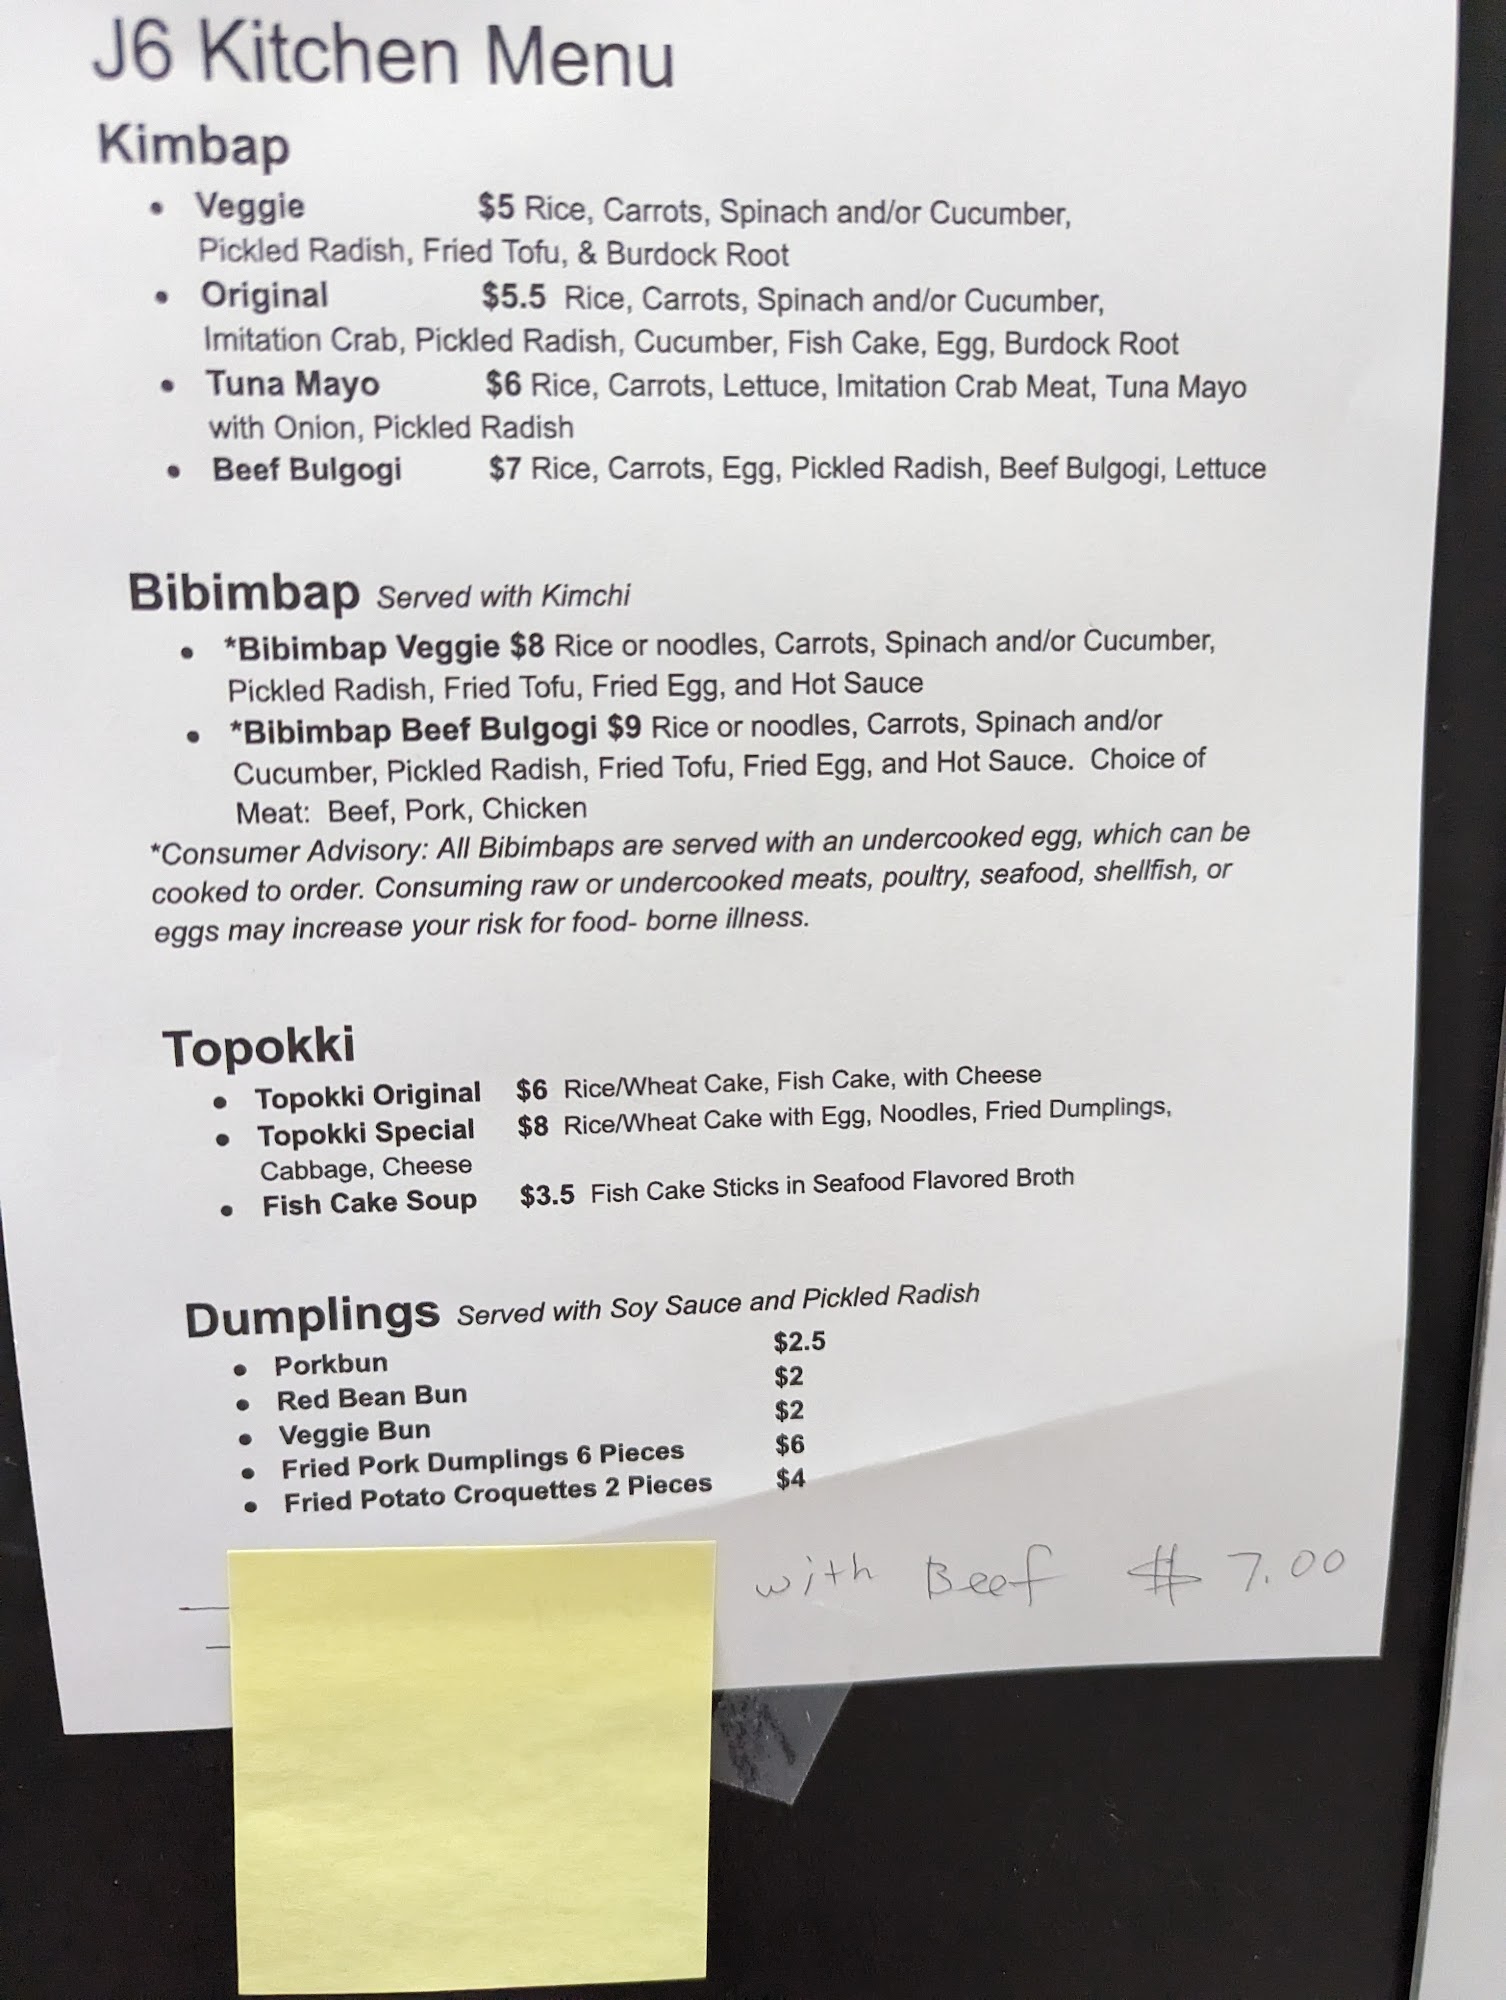 J6 Kitchen Menu
Kimbap
• Veggie $5 Rice, Carrots, Spinach and/or Cucumber,
Pickled Radish, Fried Tofu, & Burdock Root
• Original $5.5 Rice, Carrots, Spinach and/or Cucumber,
Imitation Crab, Pickled Radish, Cucumber, Fish Cake, Egg, Burdock Root
• Tuna Mayo $6 Rice, Carrots, Lettuce, Imitation Crab Meat, Tuna Mayo
with Onion, Pickled Radish
• Beef Bulgogi $7 Rice, Carrots, Egg, Pickled Radish, Beef Bulgogi, Lettuce
Bibimbap Served with Kimchi
• *Bibimbap Veggie $8 Rice or noodles, Carrots, Spinach and/or Cucumber,
Pickled Radish, Fried Tofu, Fried Egg, and Hot Sauce
• *Bibimbap Beef Bulgogi $9 Rice or noodles, Carrots, Spinach and/or
Cucumber, Pickled Radish, Fried Tofu, Fried Egg, and Hot Sauce. Choice of
Meat: Beef, Pork, Chicken
*Consumer Advisory: All Bibimbaps are served with an undercooked egg, which can be
cooked to order. Consuming raw or undercooked meats, poultry, seafood, shellfish, or
eggs may increase your risk for food- borne illness.
Topokki
• Topokki Original $6 Rice/Wheat Cake, Fish Cake, with Cheese
• Topokki Special $8 Rice/Wheat Cake with Egg, Noodles, Fried Dumplings,
Cabbage, Cheese
• Fish Cake Soup $3.5 Fish Cake Sticks in Seafood Flavored Broth
Dumplings Served with Soy Sauce and Pickled Radish
• Porkbun $2.5
• Red Bean Bun $2
• Veggie Bun $2
• Fried Pork Dumplings 6 Pieces $6
• Fried Potato Croquettes 2 Pieces $4
with Beef $7.00